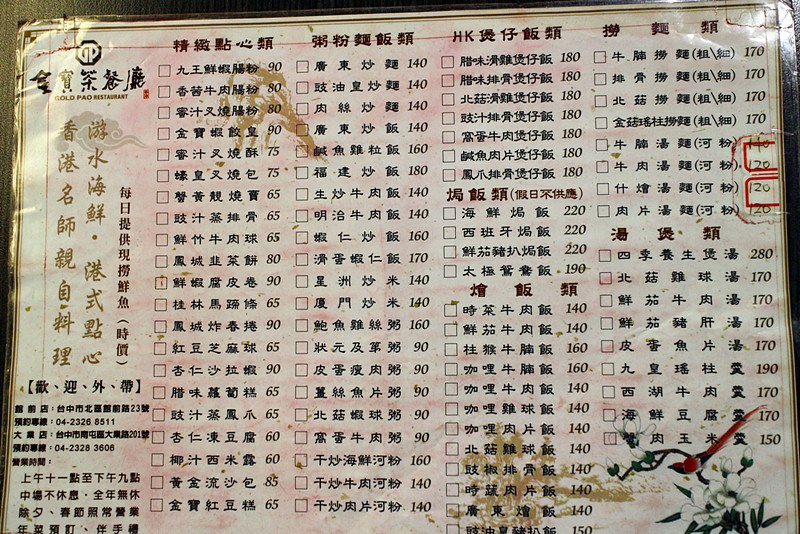 金寶茶餐廳
GOLD PAO RESTAURANT
游水海鮮・港式點心
香港名師親自料理
每日提供現撈鮮魚（時價）
【歡、迎、外、帶】
館前店：台中市北區館前路23號
預約專線：04-2326 8511
大業店：台中市南屯區大業路201號
預約專線：04-2328 3606
營業時間：
上午十一點至下午九點
中場不休息．全年無休
除夕、春節照常營業
年菜預訂、伴手禮
精緻點心類
九王鮮蝦腸粉 90
香茜牛肉腸粉 80
蜜汁叉燒腸粉 80
金寶蝦餃皇 90
蜜汁叉燒酥 75
蠔皇叉燒包 75
蟹黃靚燒賣 65
豉汁蒸排骨 65
鮮竹牛肉球 65
鳳城韭菜餅 80
鮮蝦腐皮卷 90
桂林馬蹄條 65
鳳城炸春捲 90
紅豆芝麻球 65
杏仁沙拉蝦 90
腊味蘿蔔糕 65
豉汁蒸鳳爪 65
杏仁凍豆腐 60
椰汁西米露 60
黃金流沙包 85
金寶紅豆糕 65
粥粉麵飯類
廣東炒麵 140
豉油皇炒麵 140
肉絲炒麵 140
廣東炒飯 140
鹹魚雞粒飯 160
福建炒飯 180
生炒牛肉飯 140
明治牛肉飯 140
蝦仁炒飯 160
滑蛋蝦仁飯 170
星洲炒米 140
廈門炒米 140
鮑魚雞絲粥 160
狀元及第粥 90
皮蛋瘦肉粥 90
薑絲魚片粥 90
北菇蝦球粥 90
窩蛋牛肉粥 90
干炒海鮮河粉 160
干炒牛肉河粉 140
干炒肉片河粉 140
HK煲仔飯類
腊味滑雞煲仔飯 180
腊味排骨煲仔飯 180
北菇滑雞煲仔飯 180
豉汁排骨煲仔飯 180
窩蛋牛肉煲仔飯 180
鹹魚肉片煲仔飯 180
鳳爪排骨煲仔飯 180
焗飯類(假日不供應)
海鮮焗飯 220
西班牙焗飯 220
鮮茄豬扒焗飯 220
太極鴛鴦飯 190
燴飯類
時菜牛肉飯 140
鮮茄牛肉飯 140
柱猴牛腩飯 160
咖哩牛腩飯 160
咖哩牛肉飯 140
咖哩雞球飯 140
咖哩肉片飯 140
北菇雞球飯 140
豉椒排骨飯 140
時蔬肉片飯 140
廣東燴飯 140
豉油皇雞飯 150
撈麵類
牛腩撈麵(粗\細) 170
排骨撈麵(粗\細) 170
北菇撈麵(粗\細) 170
金菇瑤柱撈麵(粗\細) 170
牛腩湯麵(河粉) 120
牛肉湯麵(河粉) 120
什燴湯麵(河粉) 120
肉片湯麵(河粉) 120
湯煲類
四季養生煲湯 280
北菇雞球湯 170
鮮茄牛肉湯 170
鮮茄豬肝湯 170
皮蛋魚片湯 170
九皇瑤柱羹 190
西湖牛肉羹 170
海鮮豆腐羹 170
蟹肉玉米羹 150